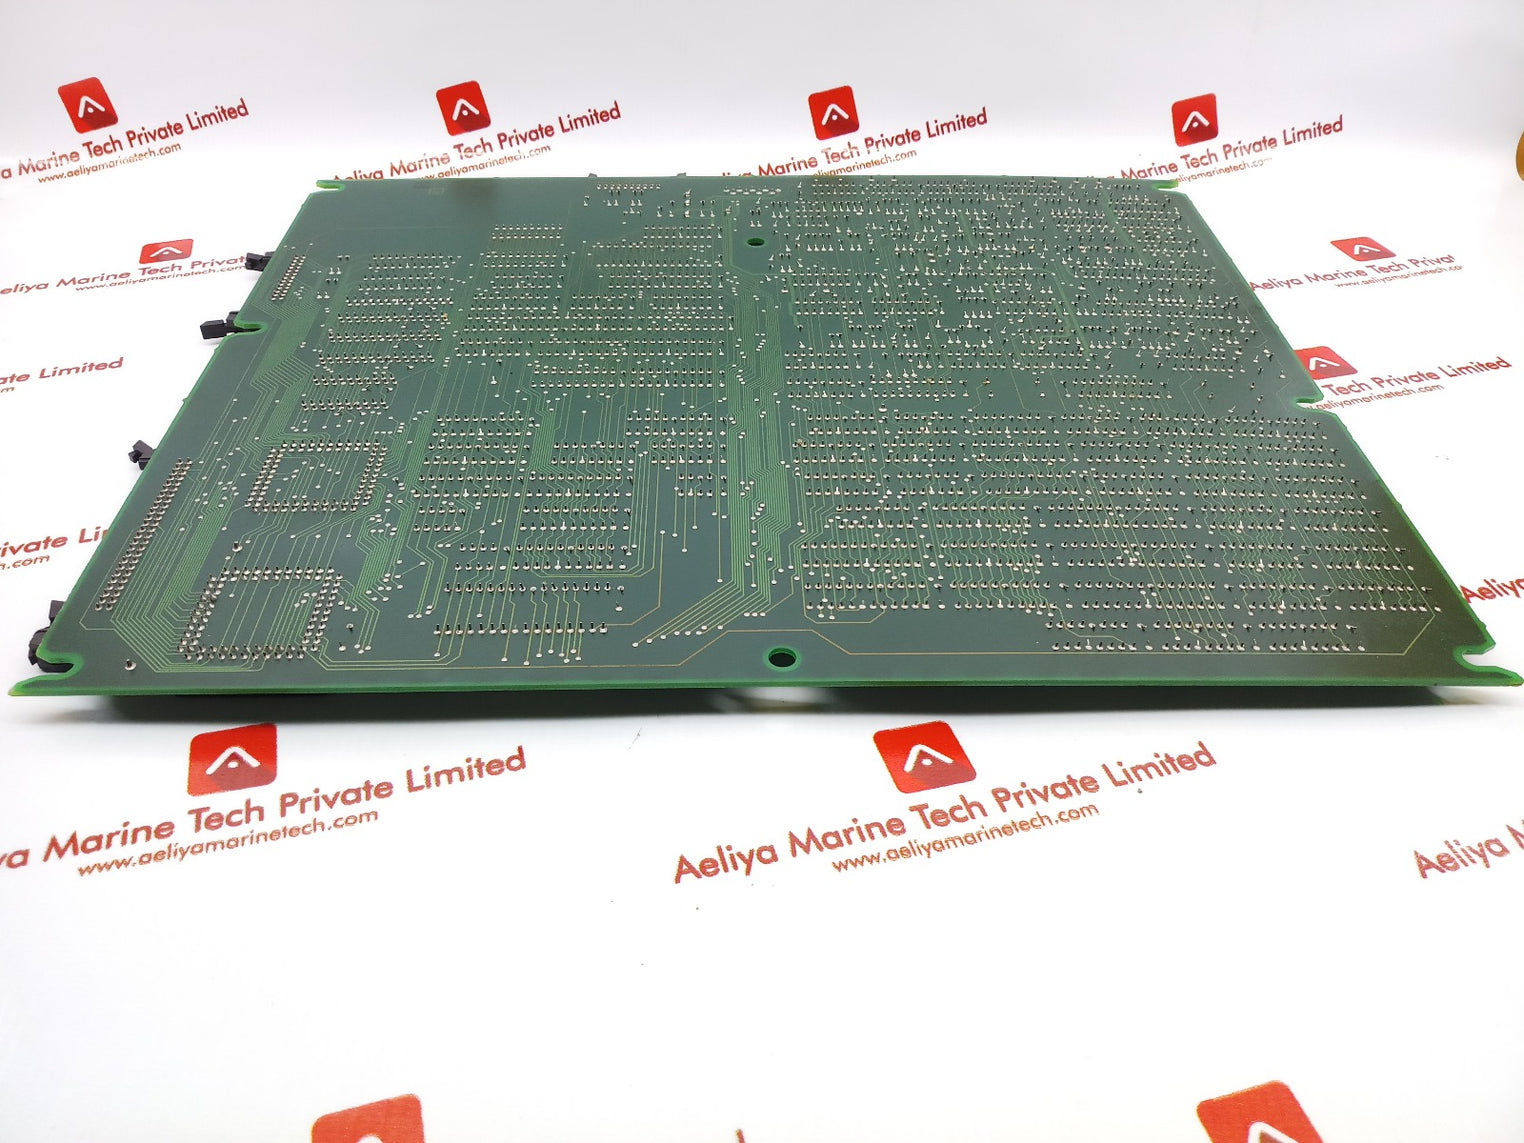 Marine Tech Private Limited
www.aeliyamarinetech.com
Marine Tech Private Limited
www.aeliyamarinetech.com
Marine Tech Private Limited
Marine Tech Private Limited
aeliyamarinetech.com
Aeliya Marine Tech Private
www.aeliyamarinetech.com
Aeliya Marine Tech Privat
www.aeliyamarinetech.com
Limited
Private Limited
marinetech.com
Aeliya
Marine Tech Private Limited
www.aeliyamarinetech.com
Aeliya Marine Tech Private Limited
www.aeliyamarinetech.com
Aeliya